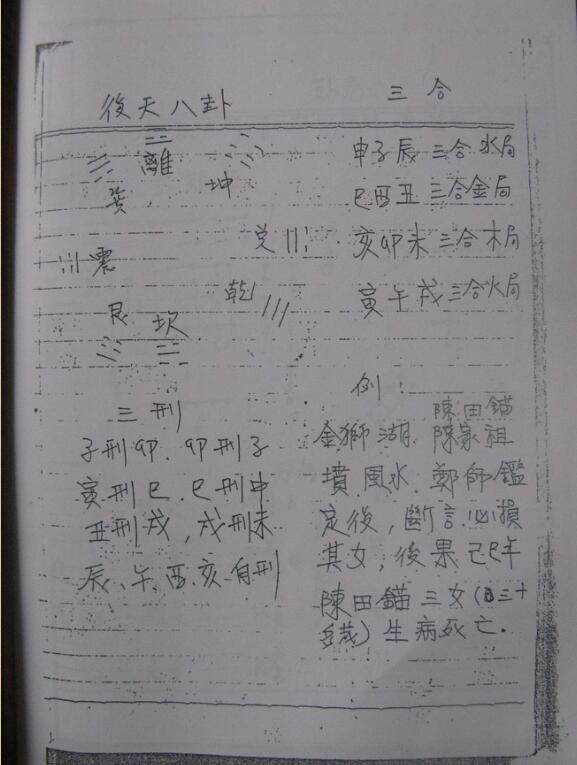 後天八卦
離
巽
坤
震
兌
艮
坎
乾
三刑
子刑卯.卯刑子
寅刑巳.巳刑申
丑刑戌,戌刑未
辰、午、酉、亥自刑
三合
申子辰三合水局
巳酉丑三合金局
亥卯未三合木局
寅午戌三合火局
例:
陳田錨
金獅湖.陳家祖
墳風水.鄭師鑑
定後,斷言必損
其女,後果己巳年
陳田錨三女(已三十
多歲)生病死亡.